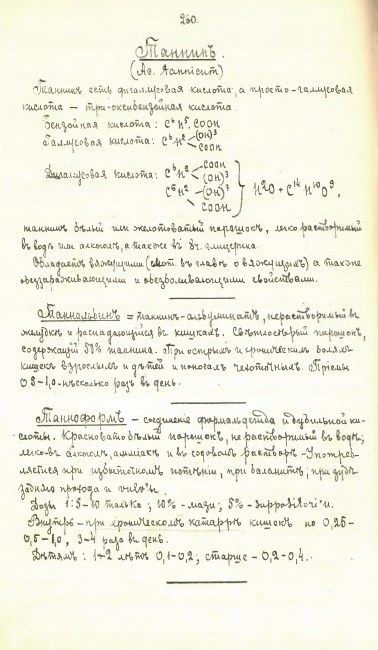 260.
Таннинъ.
(Ac. Tannicum)
Таннинъ есть дигаллусовая кислота, а просто-галлусовая
кислота — три-оксибензойная кислота.
Бензойная кислота: C⁶H⁵. COOH
Галлусовая кислота: C⁶H² (OH)³
COOH
Дигаллусовая кислота: C⁶H² COOH
(OH)³
C⁶H² (OH)³
COOH
H²O + C¹⁴H¹⁰O⁹,
таннинъ бѣлый или желтоватый порошокъ, легко растворимый
въ водѣ или алкоголѣ, а также въ 8ч. глицерина.
Обладаетъ вяжущими (смот. въ главѣ о вяжущихъ) а также
обеззараживающими и обезболивающими свойствами.
Танналбинъ = таннинъ-альбуминатъ, нерастворимый въ
желудкѣ и распадающійся въ кишкахъ. Свѣтлосѣрый порошокъ,
содержащій 50% таннина. При острыхъ и хроническихъ боляхъ
кишекъ взрослыхъ и дѣтей и поносахъ чахоточныхъ. Пріемы
0,3-1,0-нѣсколько разъ въ день.
Танноформъ — соединеніе формальдегида и дубильной ки-
слоты. Красновато бѣлый порошокъ, не растворимый въ водѣ;
легко-въ алкоголѣ, амміакѣ и въ содовомъ растворѣ. Употреб-
ляется при избыточномъ потѣніи, при баланитѣ, при зудѣ
задняго прохода и vulv'ы.
Дозы 1:5-10 талька; 10% - мази; 5% -
Внутрь - при хроническомъ катаррѣ кишекъ по 0,25-
0,5-1,0, 3-4 раза въ день.
Дѣтямъ: 1-2 лѣтъ 0,1-0,2; старше - 0,2-0,4.